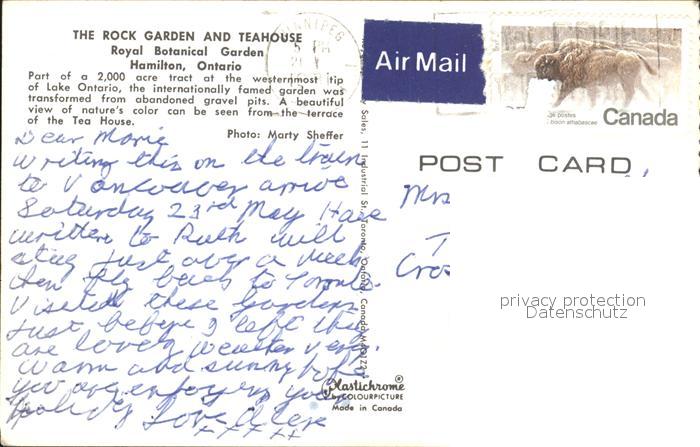 THE ROCK GARDEN AND TEAHOUSE
Royal Botanical Garden
Hamilton, Ontario
Part of a 2,000 acre tract at the westernmost tip
of Lake Ontario, the internationally famed garden was
transformed from abandoned gravel pits. A beautiful
view of nature's color can be seen from the terrace
of the Tea House.
Photo: Marty Sheffer
Dear Marie
writing this on the train
to Vancouver arrive
Saturday 23rd May Have
written to Ruth will
stay just over a week
then fly back to Toronto
Visited these Gardens
just before I left they
are lovely weather very
warm and sunny hope
you are enjoying your
holiday Love
xxxxx
Sales, 11 Industrial St., Toronto, Ontario, Canada
Plastichrome®
by COLOURPICTURE
Made in Canada
WINNIPEG
PM
Air Mail
postes
bison athabascae
Canada
POST CARD
Mrs
privacy protection
Datenschutz